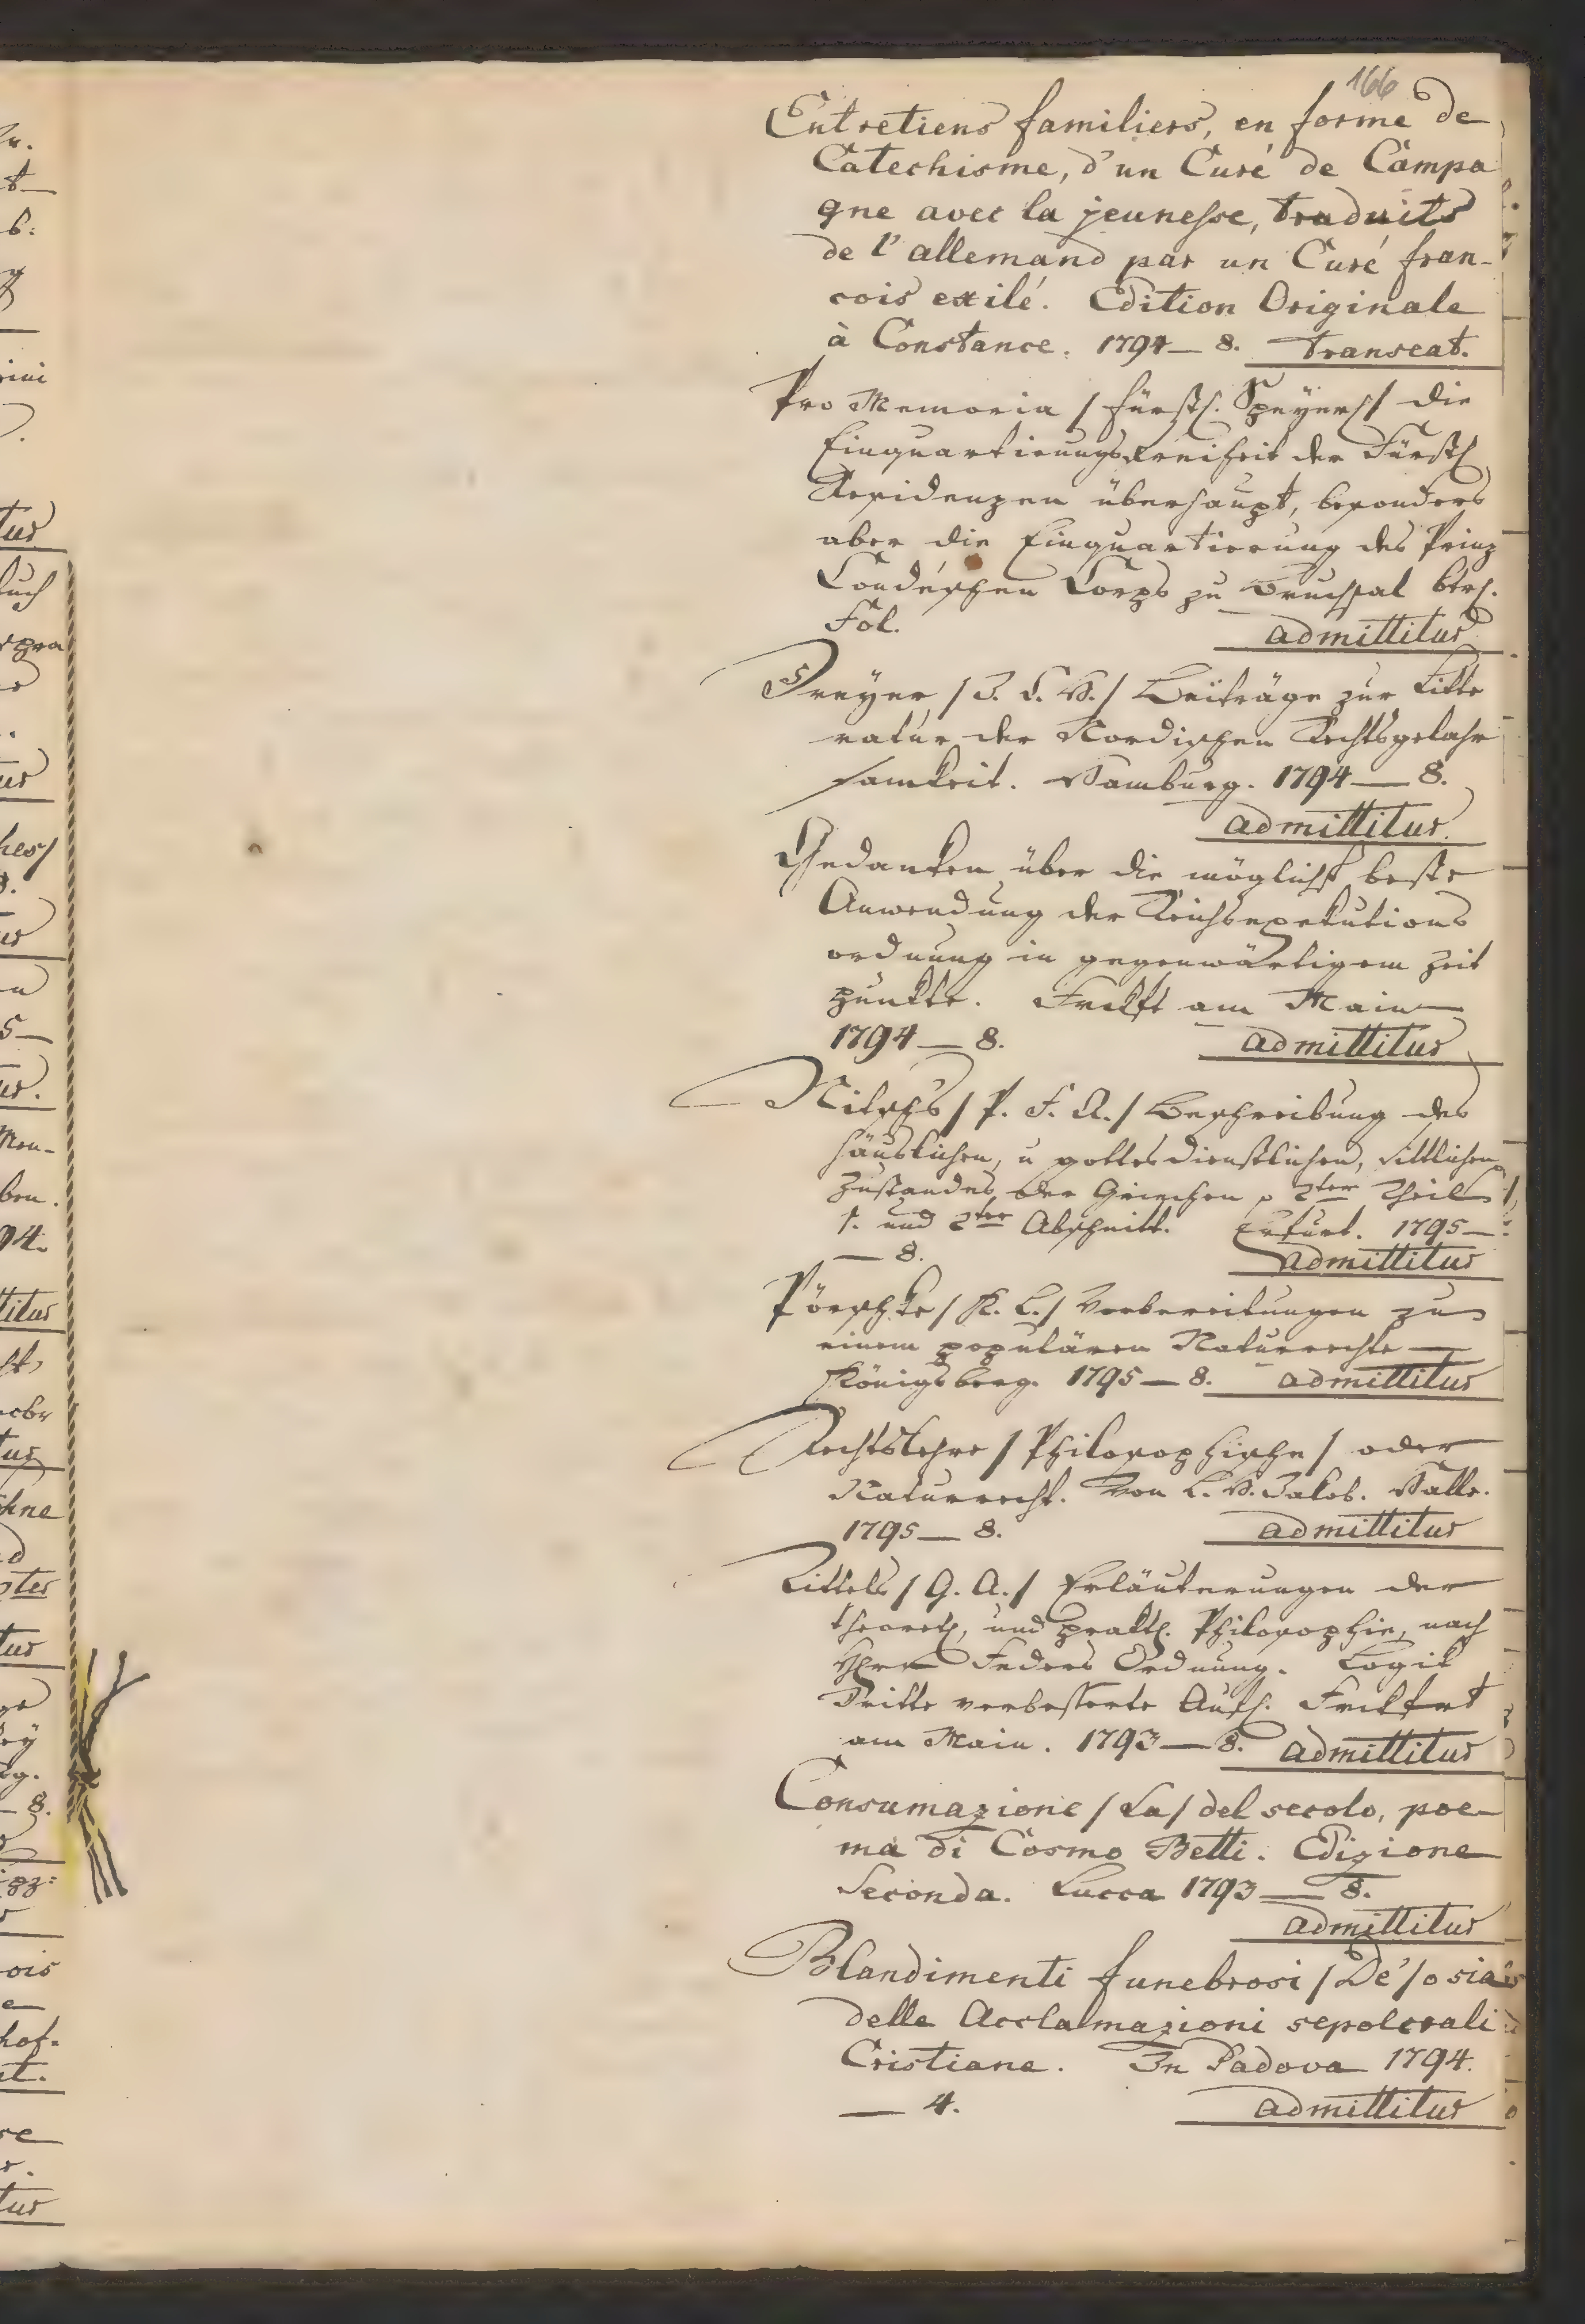 166
Entretiens familiers, en forme de
Catechisme, d'un Curé de Campa
gne avec la jeunesse, traduits
de l'allemand par un Curé fran-
cois exilé. Edition Originale
à Constance. 1794 — 8. transeat.
Pro Memoria / fürstl. Speyer / die
Einquartierungsfreiheit der Fürstl
Residenzen überhaupt, besonders
aber die Einquartierung des Prinz
Condéschen Corps zu Bruchsal betr.
Fol. admittitur
Dreyer / J. C. H. / Beiträge zur Litte
ratur der Nordischen Rechtsgelahr
samkeit. Hamburg. 1794 — 8.
admittitur.
Gedanken über die möglichst beste
Anwendung der Reichsexekutions
ordnung in gegenwärtigem Zeit
punkte. Frkft am Main
1794 — 8. admittitur
Nitschs / P. F. A. / Beschreibung des
häuslichen, u gottesdienstlichen, sittlichen
Zustandes der Griechen 2ter Theil
1. und 2ter Abschnitt. Erfurt. 1795 —
— 8. admittitur
Pörschke / K. L. / Vorbereitungen zu
einem populären Naturrechte —
Königsberg. 1795 — 8. admittitur
Rechtslehre / Philosophische / oder
Naturrecht. Von L. H. Jakob. Halle.
1795 — 8. admittitur
Tittels / G. A. / Erläuterungen der
theoret, und prakt. Philosophie, nach
Herr Feders Ordnung. Logik
Dritte verbesserte Aufl. Frckfrt
am Main. 1793 — 8. admittitur
Consumazione / La / del secolo, poe-
ma di Cosmo Betti. Edizione
Seconda. Lucca 1793 — 8.
admittitur
Blandimenti funebrosi / De' / o sia
delle Acclamazioni sepolcrali
Cristiane. In Padova 1794.
— 4. admittitur